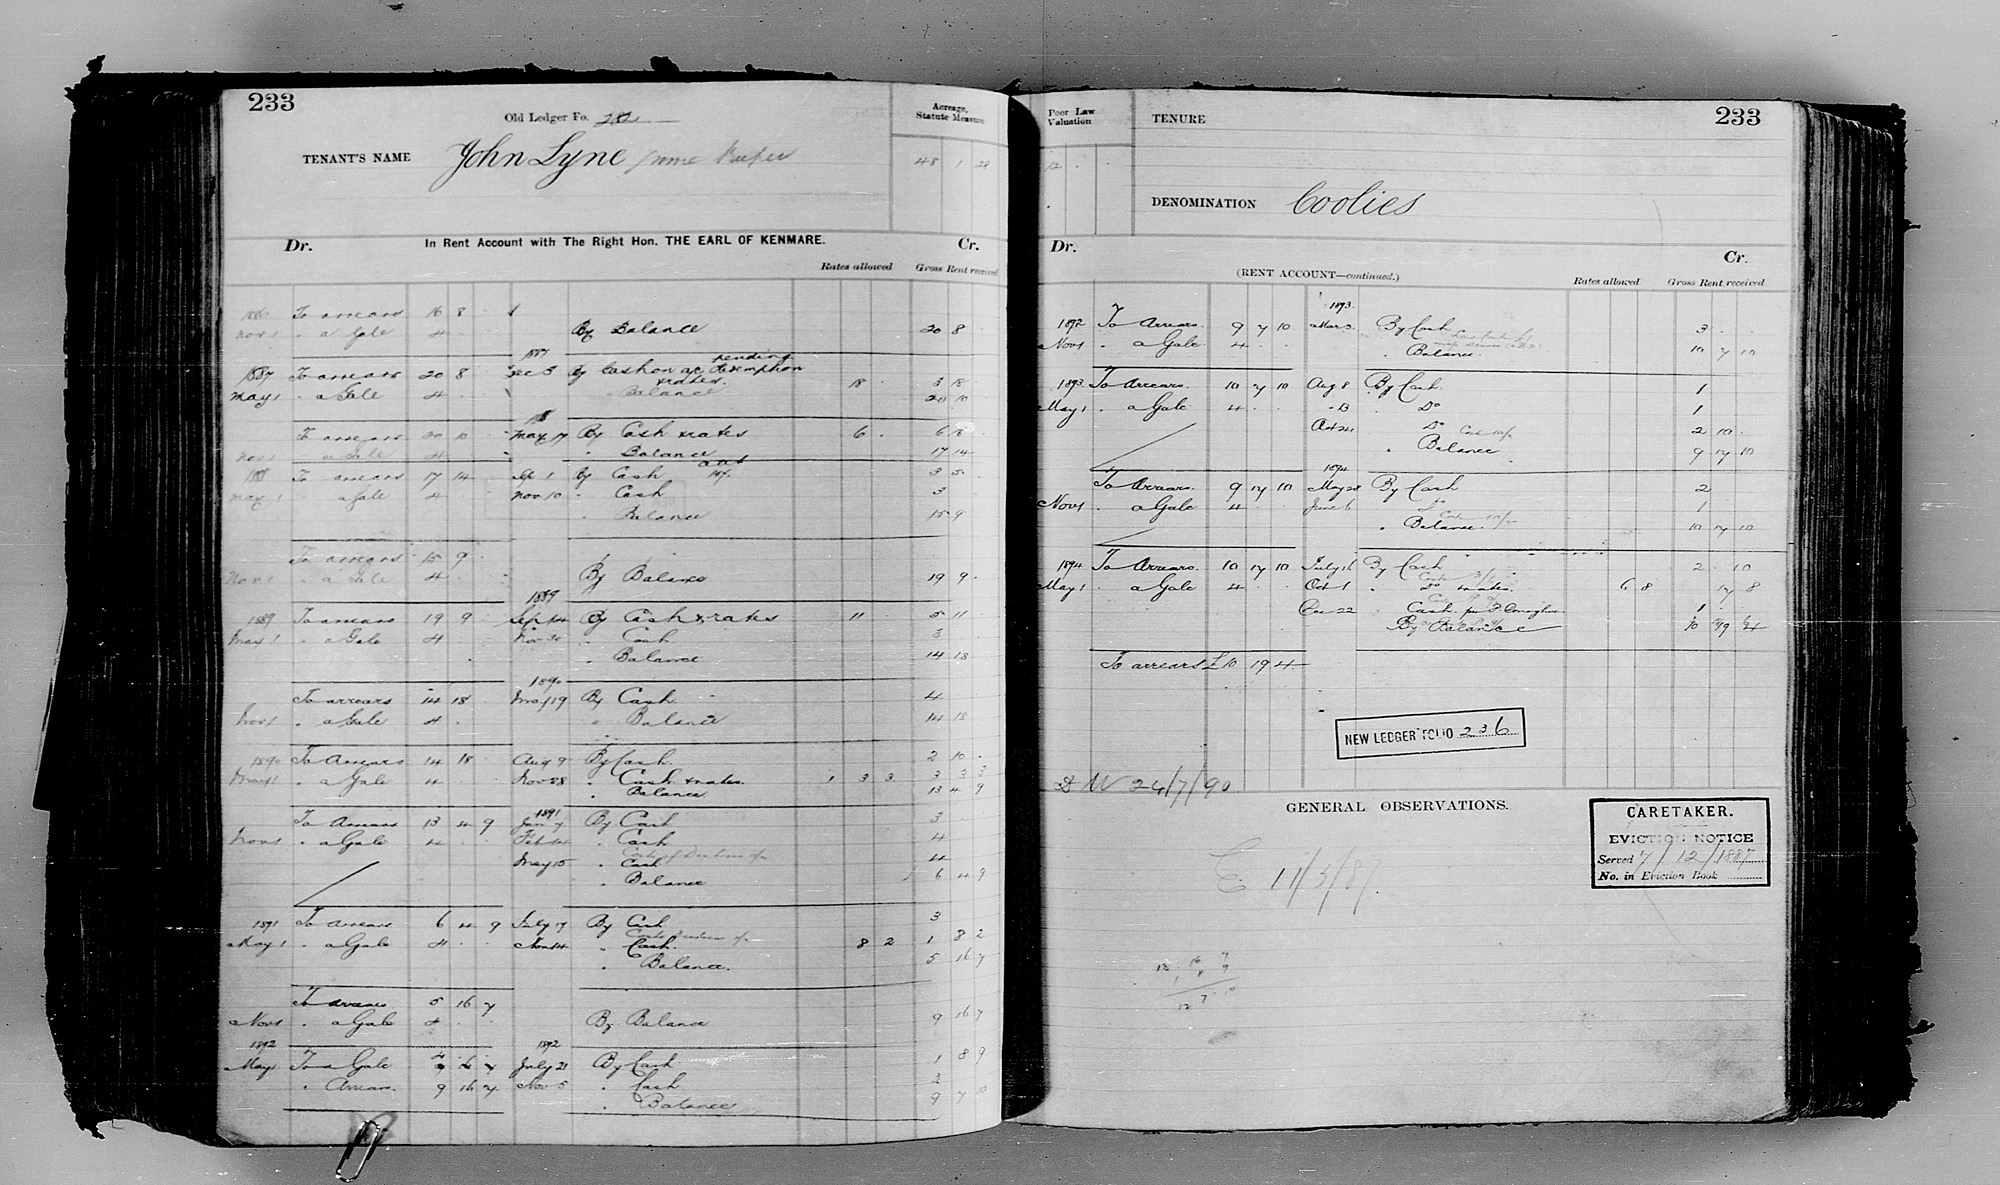 233
Old Ledger Fo. 282
Acreage, Statute Measure
TENANT'S NAME John Lyne Game Keeper
48 1 28
Dr. In Rent Account with The Right Hon. THE EARL OF KENMARE. Cr.
Rates allowed Gross Rent received
To arrears 16 8
Nov 1 " a Gale 4 By Balance 20 8
1887
1887 To arrears 20 8 Dec 5 By Cash on a/c pending Redemption
& rates 18 3 18
May 1 " a Gale 4 " Balance 20 10
To arrears 20 10 May 17 By Cash & rates 6 6 16
Nov 1 " a Gale 4 " Balance 17 14
1888 To arrears 17 14 Sep 1 By Cash 3 5
May 1 " a Gale 4 Nov 10 " Cash 3
" Balance 15 9
To arrears 15 9
Nov 1 " a Gale 4 By Balance 19 9
1889
1889 To arrears 19 9 Sep 14 By Cash & rates 11 5 11
May 1 " a Gale 4 Nov 30 " Cash 3
" Balance 14 18
1890
To arrears 14 18 May 19 By Cash 4
Nov 1 " a Gale 4 " Balance 14 18
1890 To Arrears 14 18 Aug 9 By Cash 2 10
May 1 " a Gale 4 Nov 28 " Cash & rates 1 3 3 3 3 3
" Balance 13 4 9
1891
To Arrears 13 4 9 Jan 7 By Cash 3
Nov 1 " a Gale 4 Feb 14 " Cash 4
May 15 " Cash 4
" Balance 6 4 9
1891 To Arrears 6 4 9 July 17 By Cash 3
May 1 " a Gale 4 Nov 14 " Cash 8 2 1 8 2
" Balance 5 16 7
To arrears 5 16 7
Nov 1 " a Gale 4 By Balance 9 16 7
1892 1892
May 1 To a Gale 4 July 21 By Cash 1 8 9
" Arrears 9 16 7 Nov 5 " Cash 3
" Balance 9 7 10
Poor Law Valuation
TENURE
233
12
DENOMINATION Coolies
Dr. Cr.
(RENT ACCOUNT—continued.)
Rates allowed Gross Rent received
1893
1892 To Arrears 9 7 10 Mar 3 By Cash 3
Nov 1 " a Gale 4 " Balance 10 7 10
1893 To Arrears 10 7 10 Aug 8 By Cash 1
May 1 " a Gale 4 " Do 1
Oct 24 Do 2 10
" Balance 9 17 10
1894
To Arrears 9 17 10 May 28 By Cash 2
Nov 1 " a Gale 4 June 6 Do 1
" Balance 10 17 10
1894 To Arrears 10 17 10 July 16 By Cash 2 10
May 1 " a Gale 4 Oct 1 " Do rates 6 8 17 8
Dec 22 " Cash per
By Balance 10 19 4
To arrears £ 10 19 4
NEW LEDGER FOLIO 236
24/7/90
GENERAL OBSERVATIONS.
CARETAKER.
EVICTION NOTICE
Served 7/12/1887
No. in Eviction Book
E 11/5/87
16 7
8 9
12 7 10